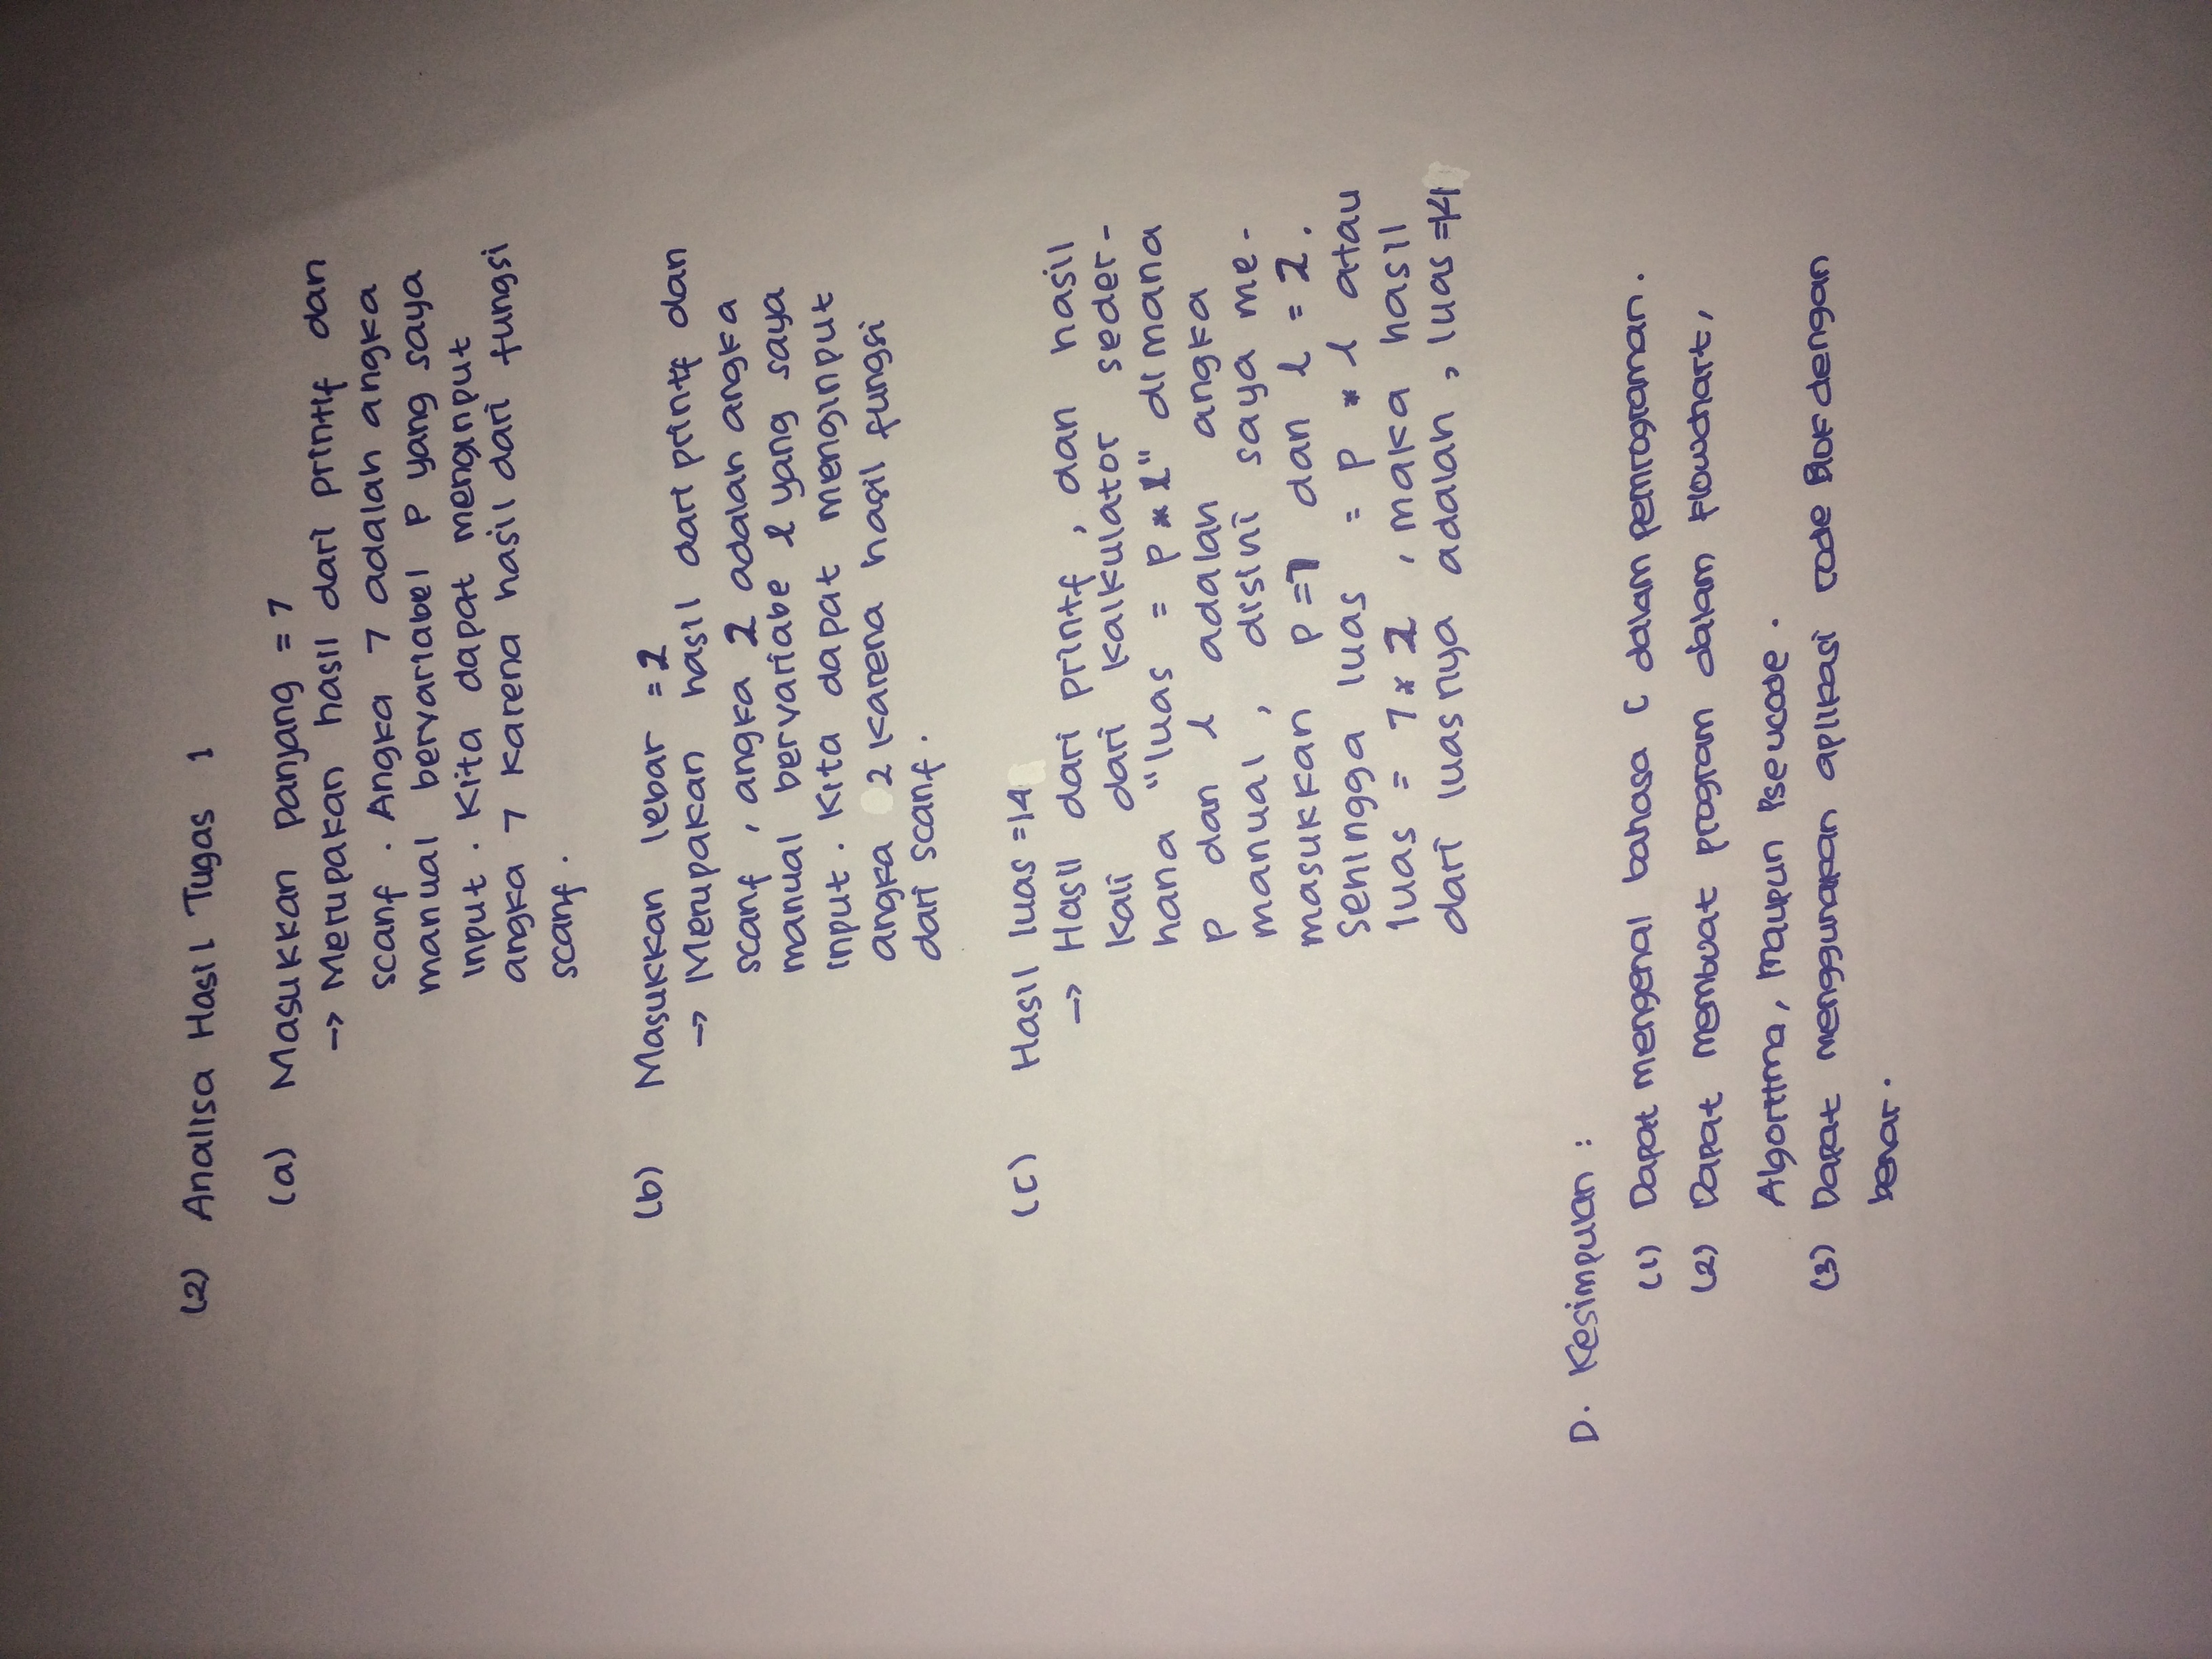 (2) Analisa Hasil Tugas 1
(a) Masukkan panjang = 7
→ Merupakan hasil dari printif dan
scanf . Angka 7 adalah angka
manual bervariabel P yang saya
input . Kita dapat menginput
angka 7 karena hasil dari fungsi
scanf .
(b) Masukkan lebar = 2
→ Merupakan hasil dari printf dan
scanf , angka 2 adalah angka
manual bervariabe l yang saya
input . Kita dapat menginput
angka 2 karena hasil fungsi
dari scanf .
(c) Hasil luas =14
→ Hasil dari printf , dan hasil
kali dari kalkulator seder-
hana "luas = p * l" dimana
p dan l adalah angka
manual , disini saya me-
masukkan p =7 dan l = 2 .
Sehingga luas = p * l atau
luas = 7 x 2 , maka hasil
dari luasnya adalah , luas =14
D. Kesimpulan :
(1) Dapat mengenal bahasa C dalam pemrograman .
(2) Dapat membuat program dalam Flowchart ,
Algoritma , Maupun Pseucode .
(3) Dapat menggunakan aplikasi code Blok dengan
benar .